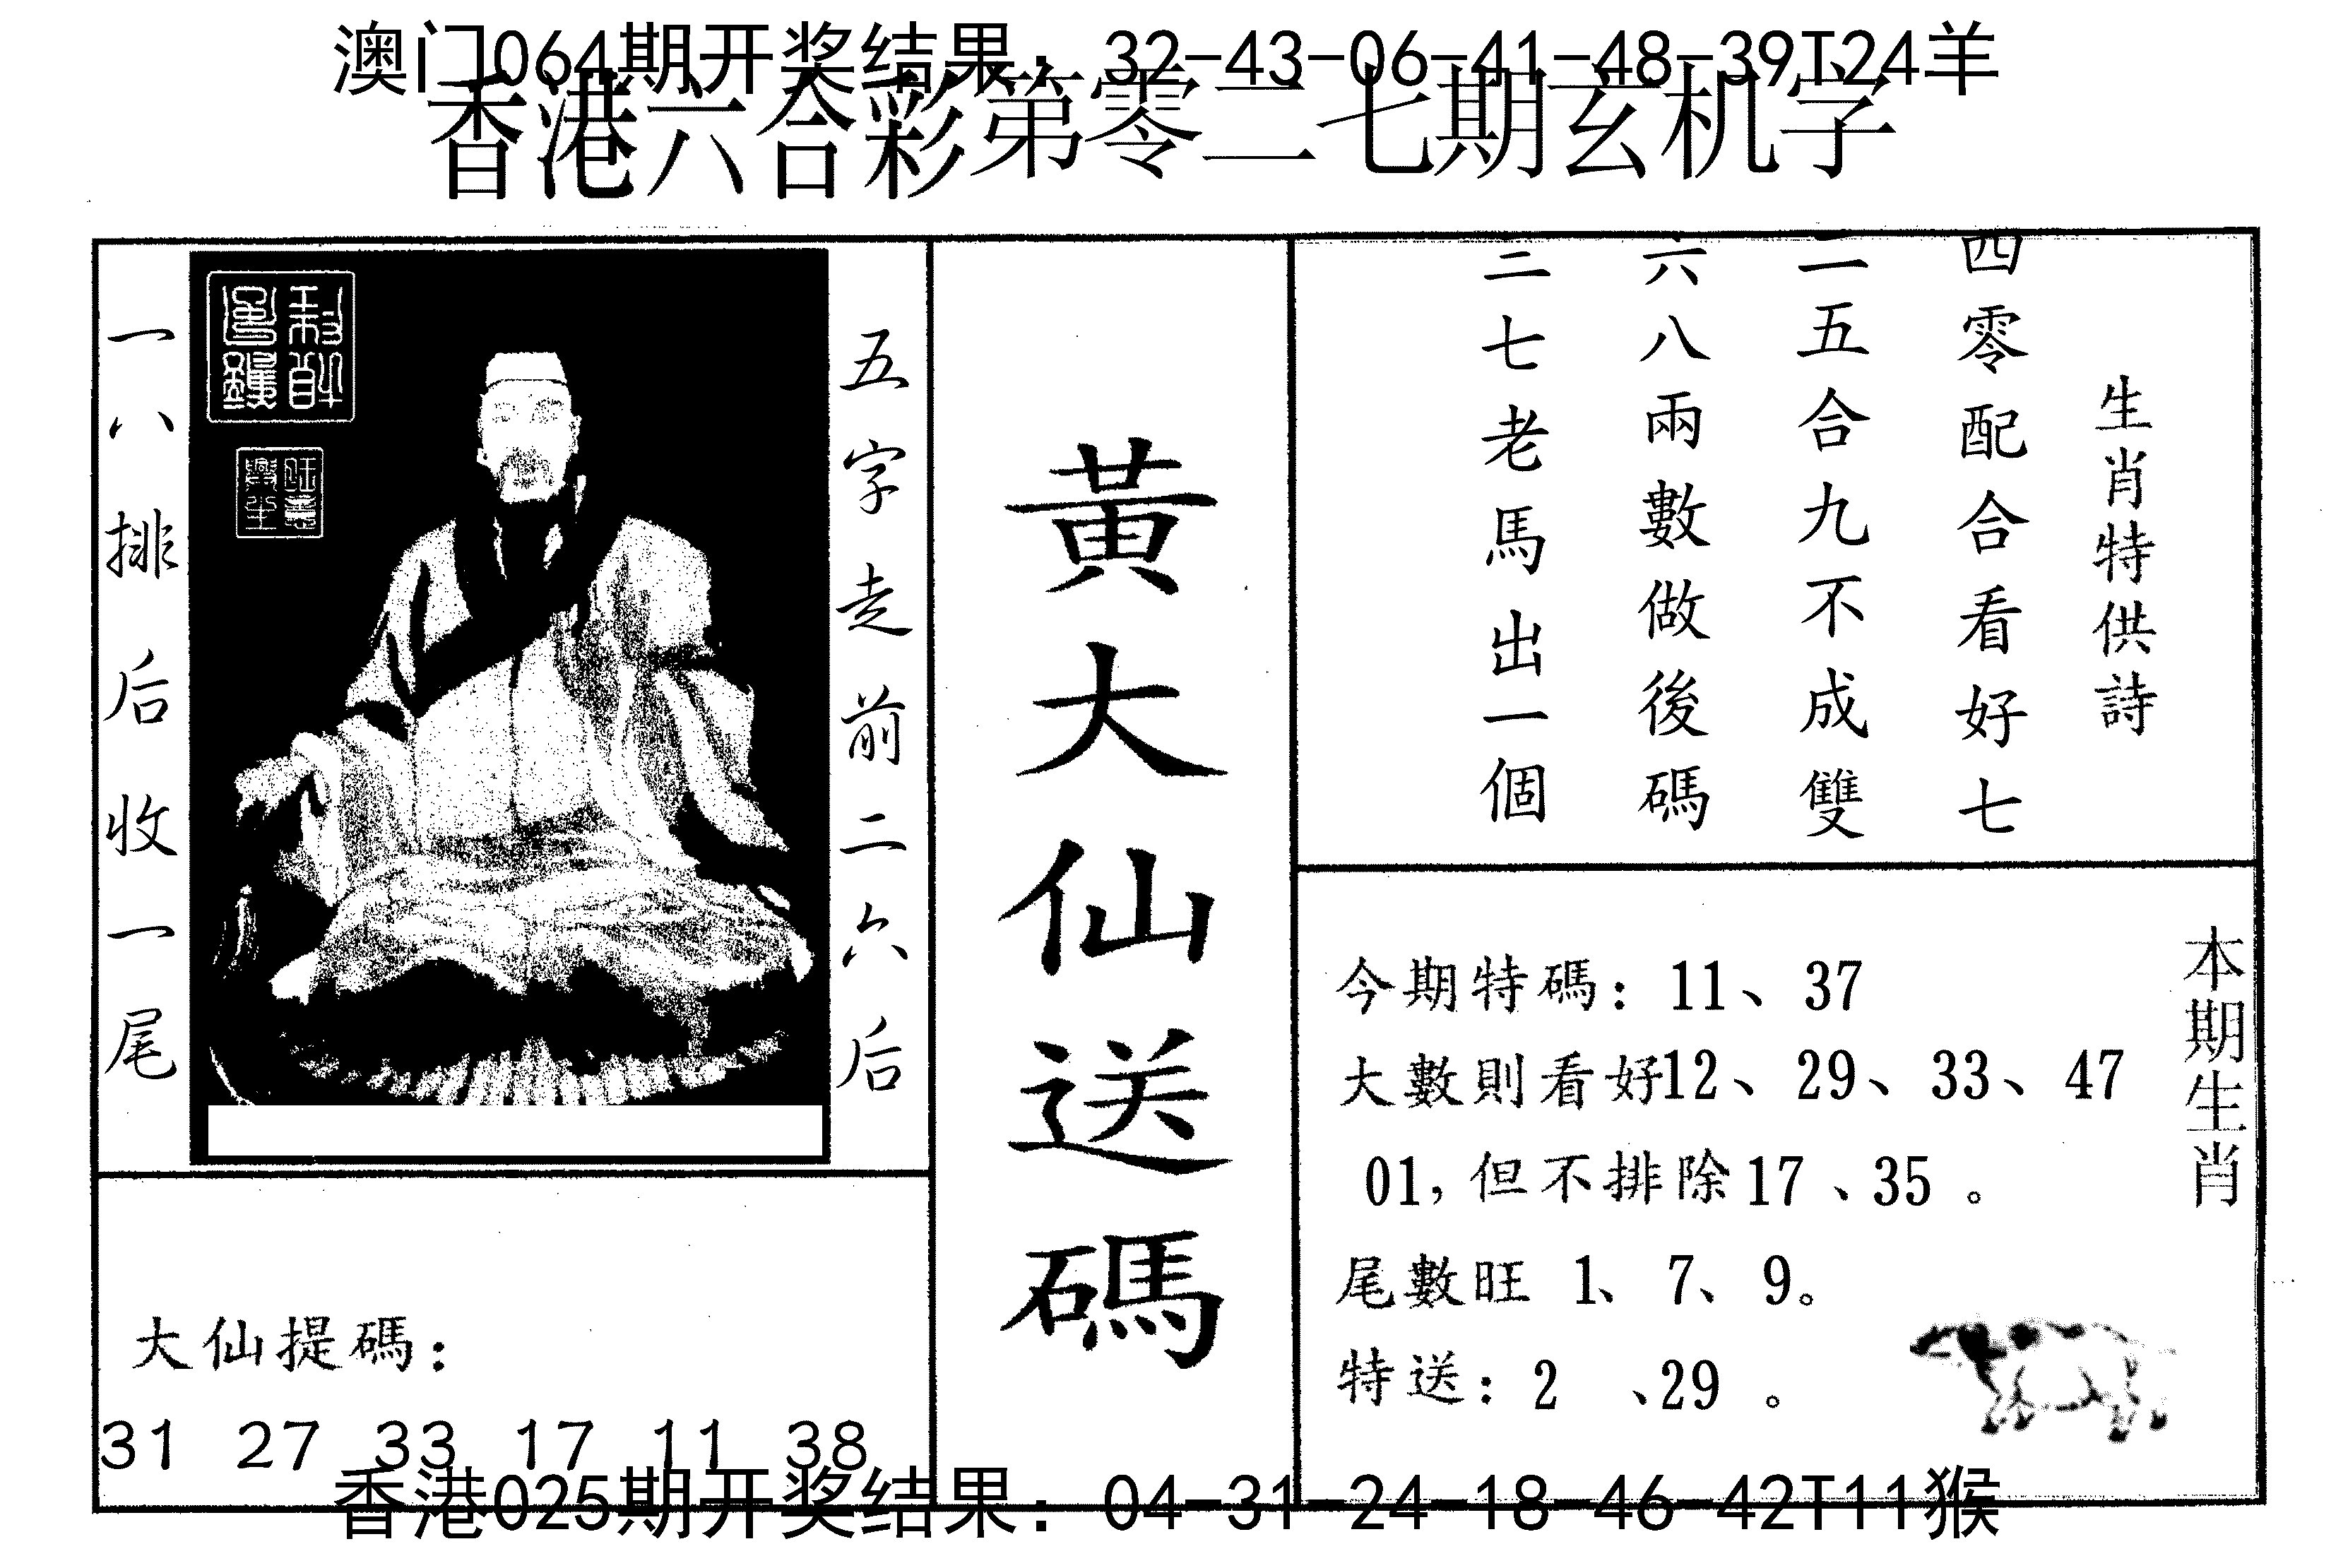 澳门064期开奖结果：32-43-06-41-48-39T24羊
香港六合彩第零二七期玄机字
生肖特供詩
四零配合看好七
二五合九不成雙
六八兩數做後碼
三七老馬出一個
黃大仙送碼
五字走前二六后
一八排后收一尾
本期生肖
今期特碼：11、37
大數則看好12、29、33、47
01，但不排除17、35。
尾數旺 1、7、9。
特送：2 、29 。
大仙提碼：
31 27 33 17 11 38
香港025期开奖结果：04-31-24-18-46-42T11猴